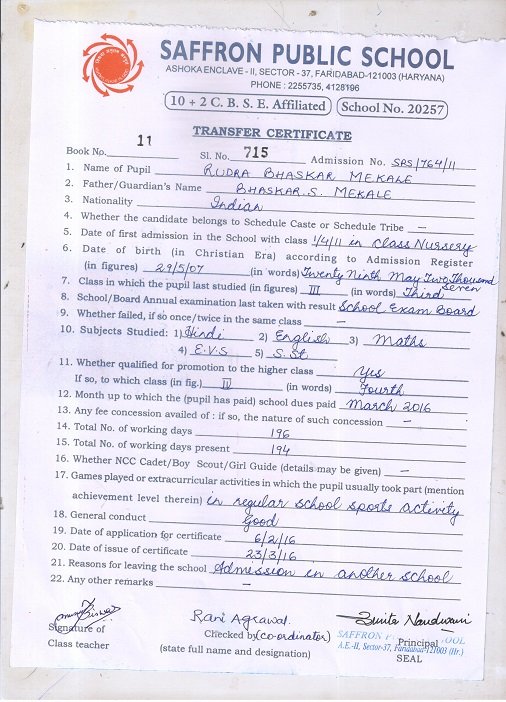 SAFFRON PUBLIC SCHOOL
ASHOKA ENCLAVE - II, SECTOR - 37, FARIDABAD-121003 (HARYANA)
PHONE : 2255735, 4128196
10 + 2 C. B. S. E. Affiliated School No. 20257
TRANSFER CERTIFICATE
Book No. 11 Sl. No. 715 Admission No. SPS/764/11
1. Name of Pupil RUDRA BHASKAR MEKALE
2. Father/Guardian's Name BHASKAR. S. MEKALE
3. Nationality Indian
4. Whether the candidate belongs to Schedule Caste or Schedule Tribe —
5. Date of first admission in the School with class 1/4/11 in Class Nursery
6. Date of birth (in Christian Era) according to Admission Register
(in figures) 29/5/07 (in words) Twenty Ninth May Two Thousand Seven
7. Class in which the pupil last studied (in figures) III (in words) Third
8. School/Board Annual examination last taken with result School Exam Board
9. Whether failed, if so once/twice in the same class —
10. Subjects Studied: 1) Hindi 2) English 3) Maths
4) E.V.S 5) S.St
11. Whether qualified for promotion to the higher class Yes
If so, to which class (in fig.) IV (in words) Fourth
12. Month up to which the (pupil has paid) school dues paid March 2016
13. Any fee concession availed of : if so, the nature of such concession —
14. Total No. of working days 196
15. Total No. of working days present 194
16. Whether NCC Cadet/Boy Scout/Girl Guide (details may be given) —
17. Games played or extracurricular activities in which the pupil usually took part (mention
achievement level therein) in regular school sports activity
18. General conduct Good
19. Date of application for certificate 6/2/16
20. Date of issue of certificate 23/3/16
21. Reasons for leaving the school Admission in another school
22. Any other remarks —
Rani Agrawal Sunita Nandwani
Signature of Checked by (co-ordinator) SAFFRON Principal
Class teacher (state full name and designation) A.E.-II, Sector-37, Faridabad-121003 (Hr.)
SEAL